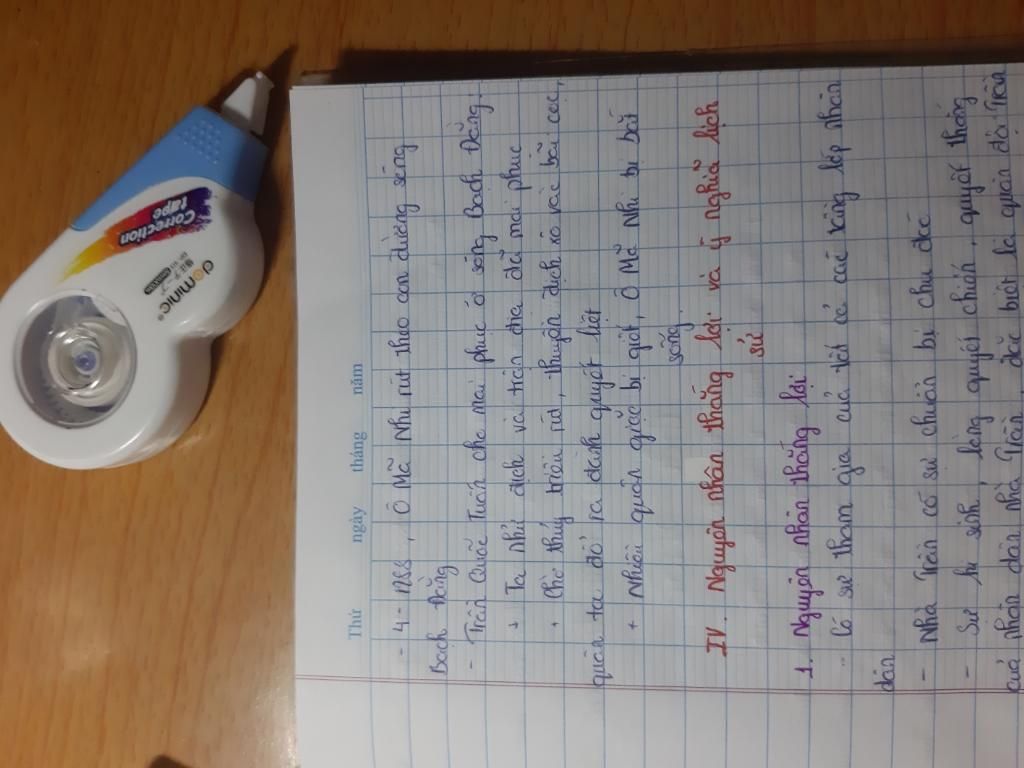 Correction
tape
Thứ ngày tháng năm
- 4 - 1288, Ô Mã Nhi rút theo con đường sông
Bạch Đằng
- Trần Quốc Tuấn cho mai phục ở sông Bạch Đằng:
+ Ta nhử địch vào trận địa đã mai phục
+ Chờ thủy triều rút, thuyền địch xô vào bãi cọc,
quân ta đổ ra đánh quyết liệt
+ Nhiều quân giặc bị giết, Ô Mã Nhi bị bắt
sống.
IV. Nguyên nhân thắng lợi và ý nghĩa lịch
sử
1. Nguyên nhân thắng lợi
- Có sự tham gia của tất cả các tầng lớp nhân
dân
- Nhà Trần có sự chuẩn bị chu đáo
- Sự hi sinh, lòng quyết chiến, quyết thắng
của nhân dân nhà Trần, đặc biệt là quân đội Trần